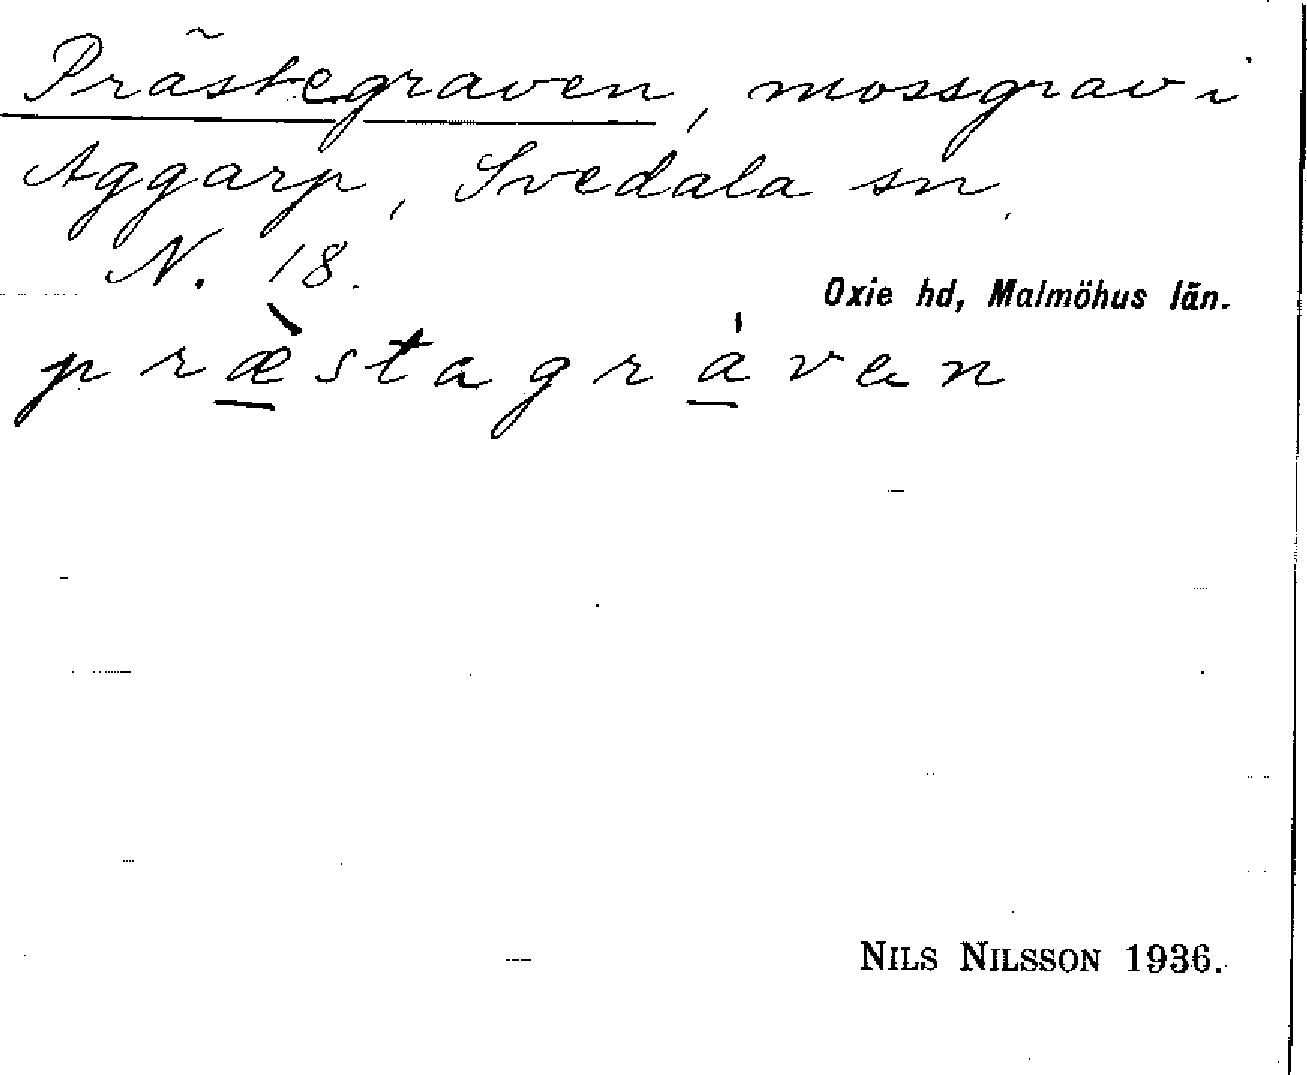 Prästegraven, mossgrav i
Aggarp, Svedala sn.
N. 18.
Oxie hd, Malmöhus län.
præ̱̀stagrá̱ven
NILS NILSSON 1936.